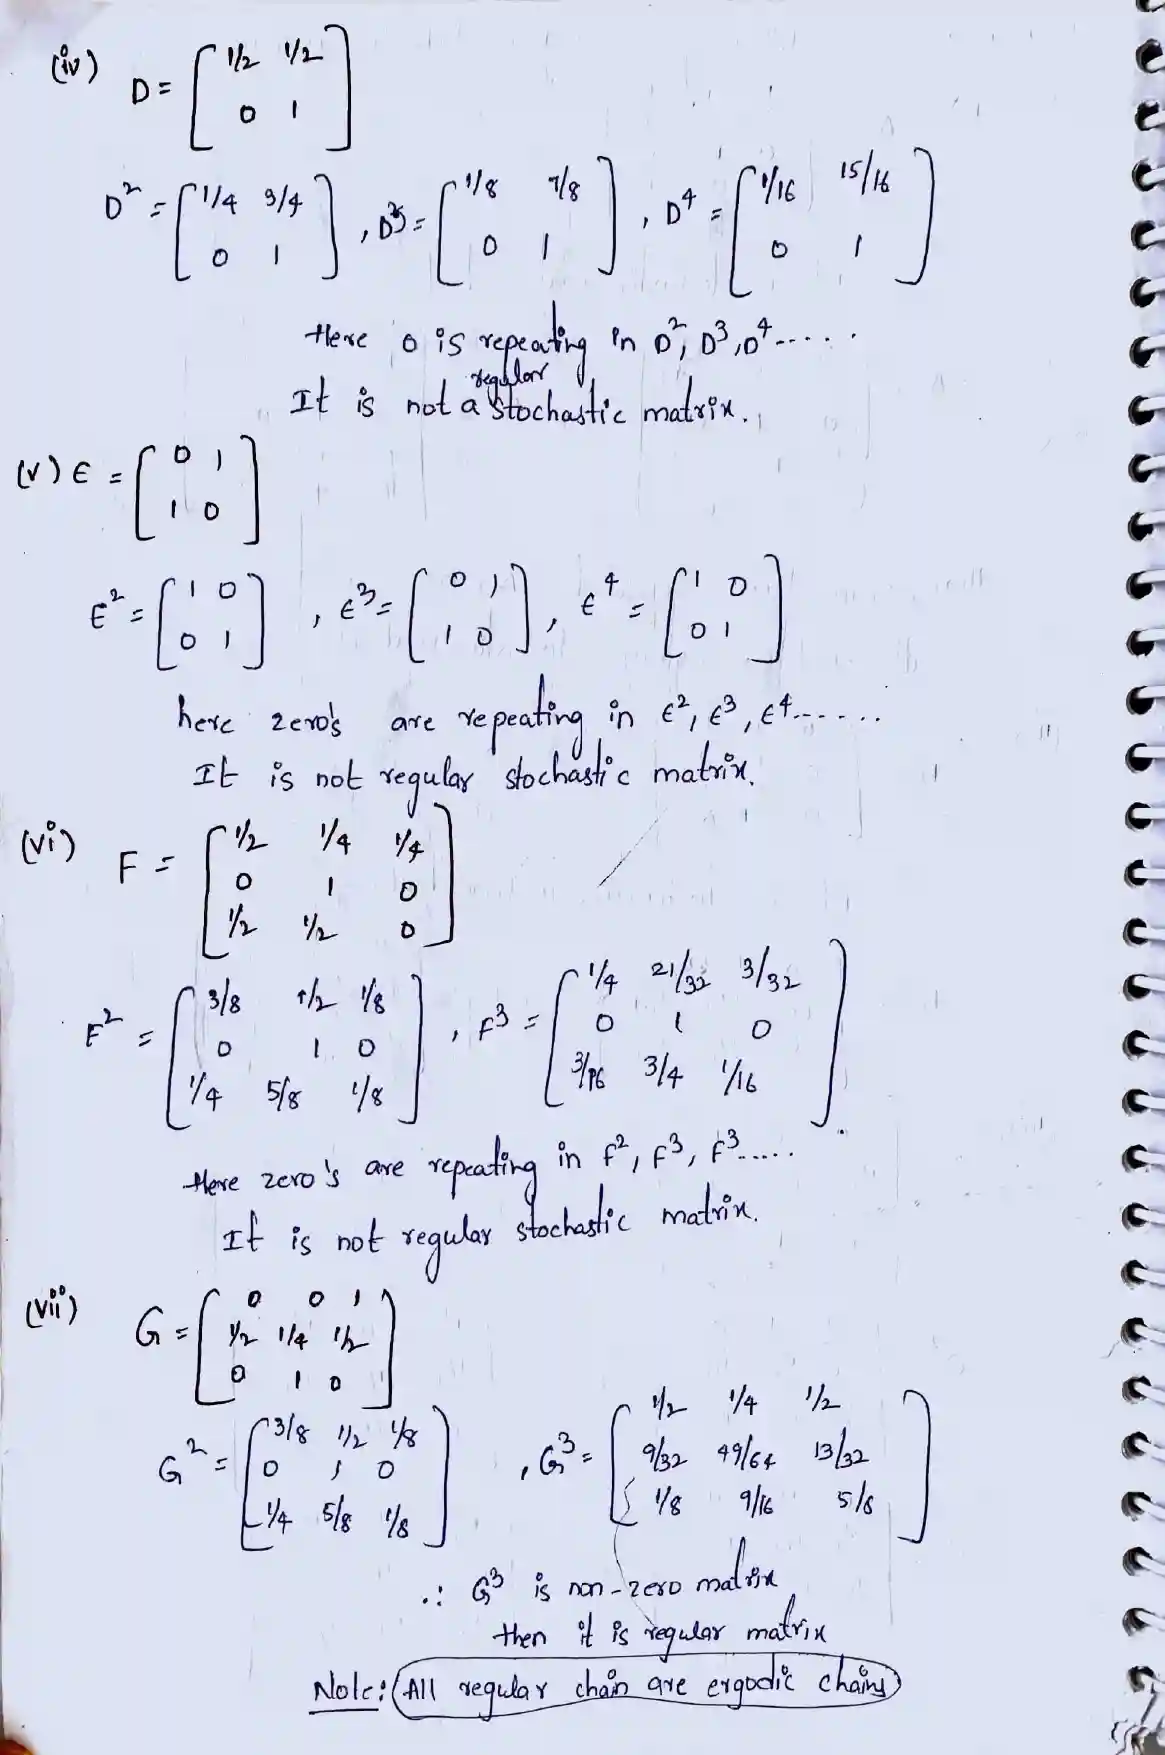 (iv) D = [ 1/2 1/2
0 1 ]
D² = [ 1/4 3/4
0 1 ] , D³ = [ 1/8 7/8
0 1 ] , D⁴ = [ 1/16 15/16
0 1 ]
Here 0 is repeating in D², D³, D⁴......
It is not a regular stochastic matrix.
(v) E = [ 0 1
1 0 ]
E² = [ 1 0
0 1 ] , E³ = [ 0 1
1 0 ] , E⁴ = [ 1 0
0 1 ]
here zero's are repeating in E², E³, E⁴......
It is not regular stochastic matrix.
(vi) F = [ 1/2 1/4 1/4
0 1 0
1/2 1/2 0 ]
F² = [ 3/8 1/2 1/8
0 1 0
1/4 5/8 1/8 ] , F³ = [ 1/4 21/32 3/32
0 1 0
3/16 3/4 1/16 ]
Here zero's are repeating in F², F³, F³.....
It is not regular stochastic matrix.
(vii) G = [ 0 0 1
1/2 1/4 1/2
0 1 0 ]
G² = [ 3/8 1/2 1/8
0 1 0
1/4 5/8 1/8 ] , G³ = [ 1/2 1/4 1/2
9/32 49/64 13/32
1/8 9/16 5/8 ]
∴ G³ is non-zero matrix
then it is regular matrix
Note: All regular chain are ergodic chains